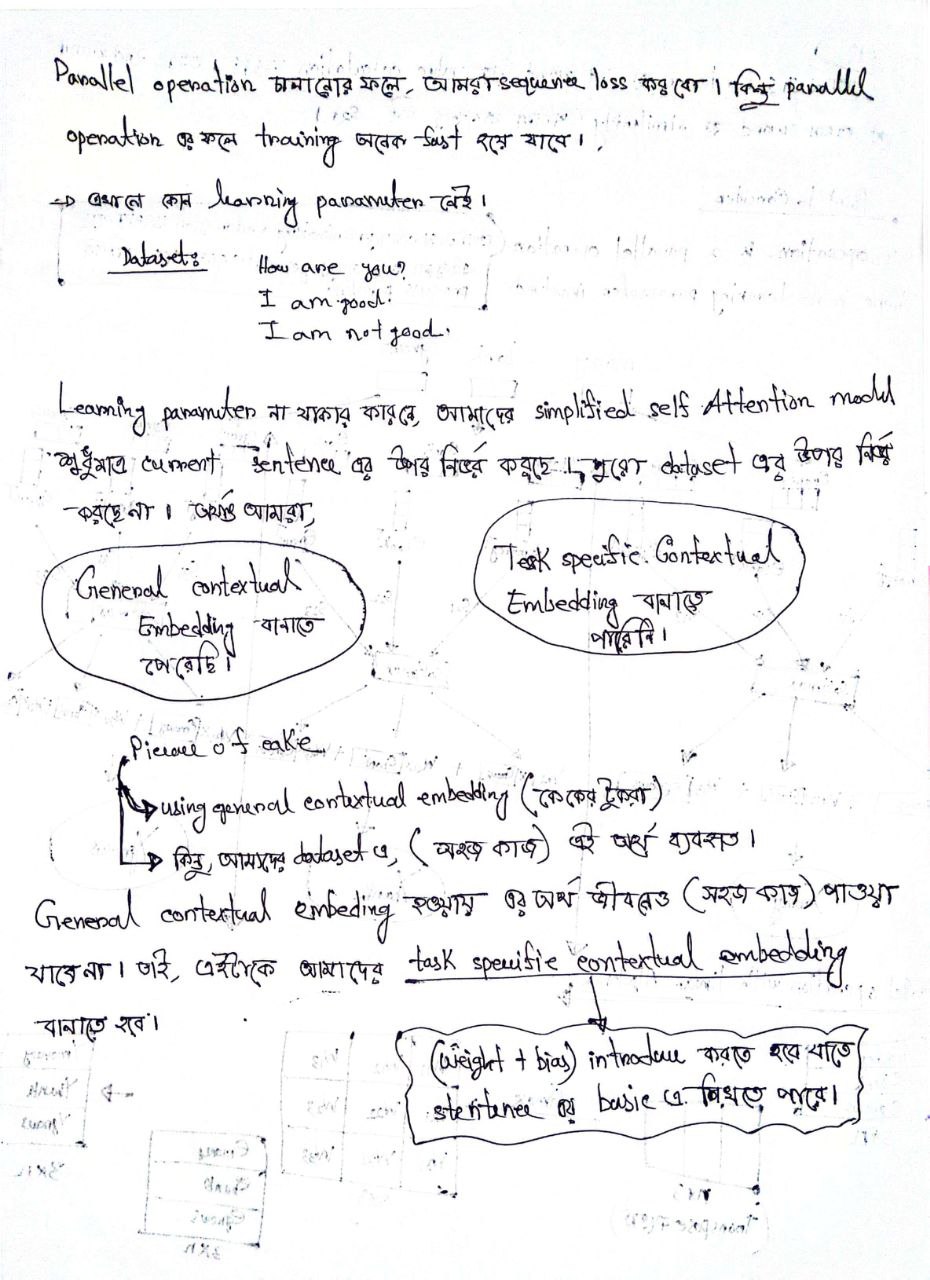 Parallel operation চালানোর ফলে, আমরা sequence loss করবো। কিন্তু parallel
operation এর ফলে training অনেক fast হয়ে যাবে।
→ এখানে কোন learning parameter নেই।
Dataset: How are you?
I am good.
I am not good.
Learning parameter না থাকার কারনে, আমাদের simplified self Attention model
শুধুমাত্র current sentence এর উপর নির্ভর করছে। পুরো dataset এর উপর নির্ভর
করছে না। অর্থাৎ আমরা,
General contextual
Embedding বানাতে
পেরেছি।
Task specific Contextual
Embedding বানাতে
পারিনি।
Piecace of cake
→ using general contextual embedding (কেকের টুকরা)
→ কিন্তু, আমাদের dataset এ, (সহজ কাজ) এই অর্থে ব্যবহৃত।
General contextual embeding হওয়ায় এর অর্থ জীবনেও (সহজ কাজ) পাওয়া
যাবে না। তাই, এইটাকে আমাদের task specific contextual embedding
বানাতে হবে।
(weight + bias) introduce করতে হবে যাতে
stentence এর basic এ শিখতে পারে।